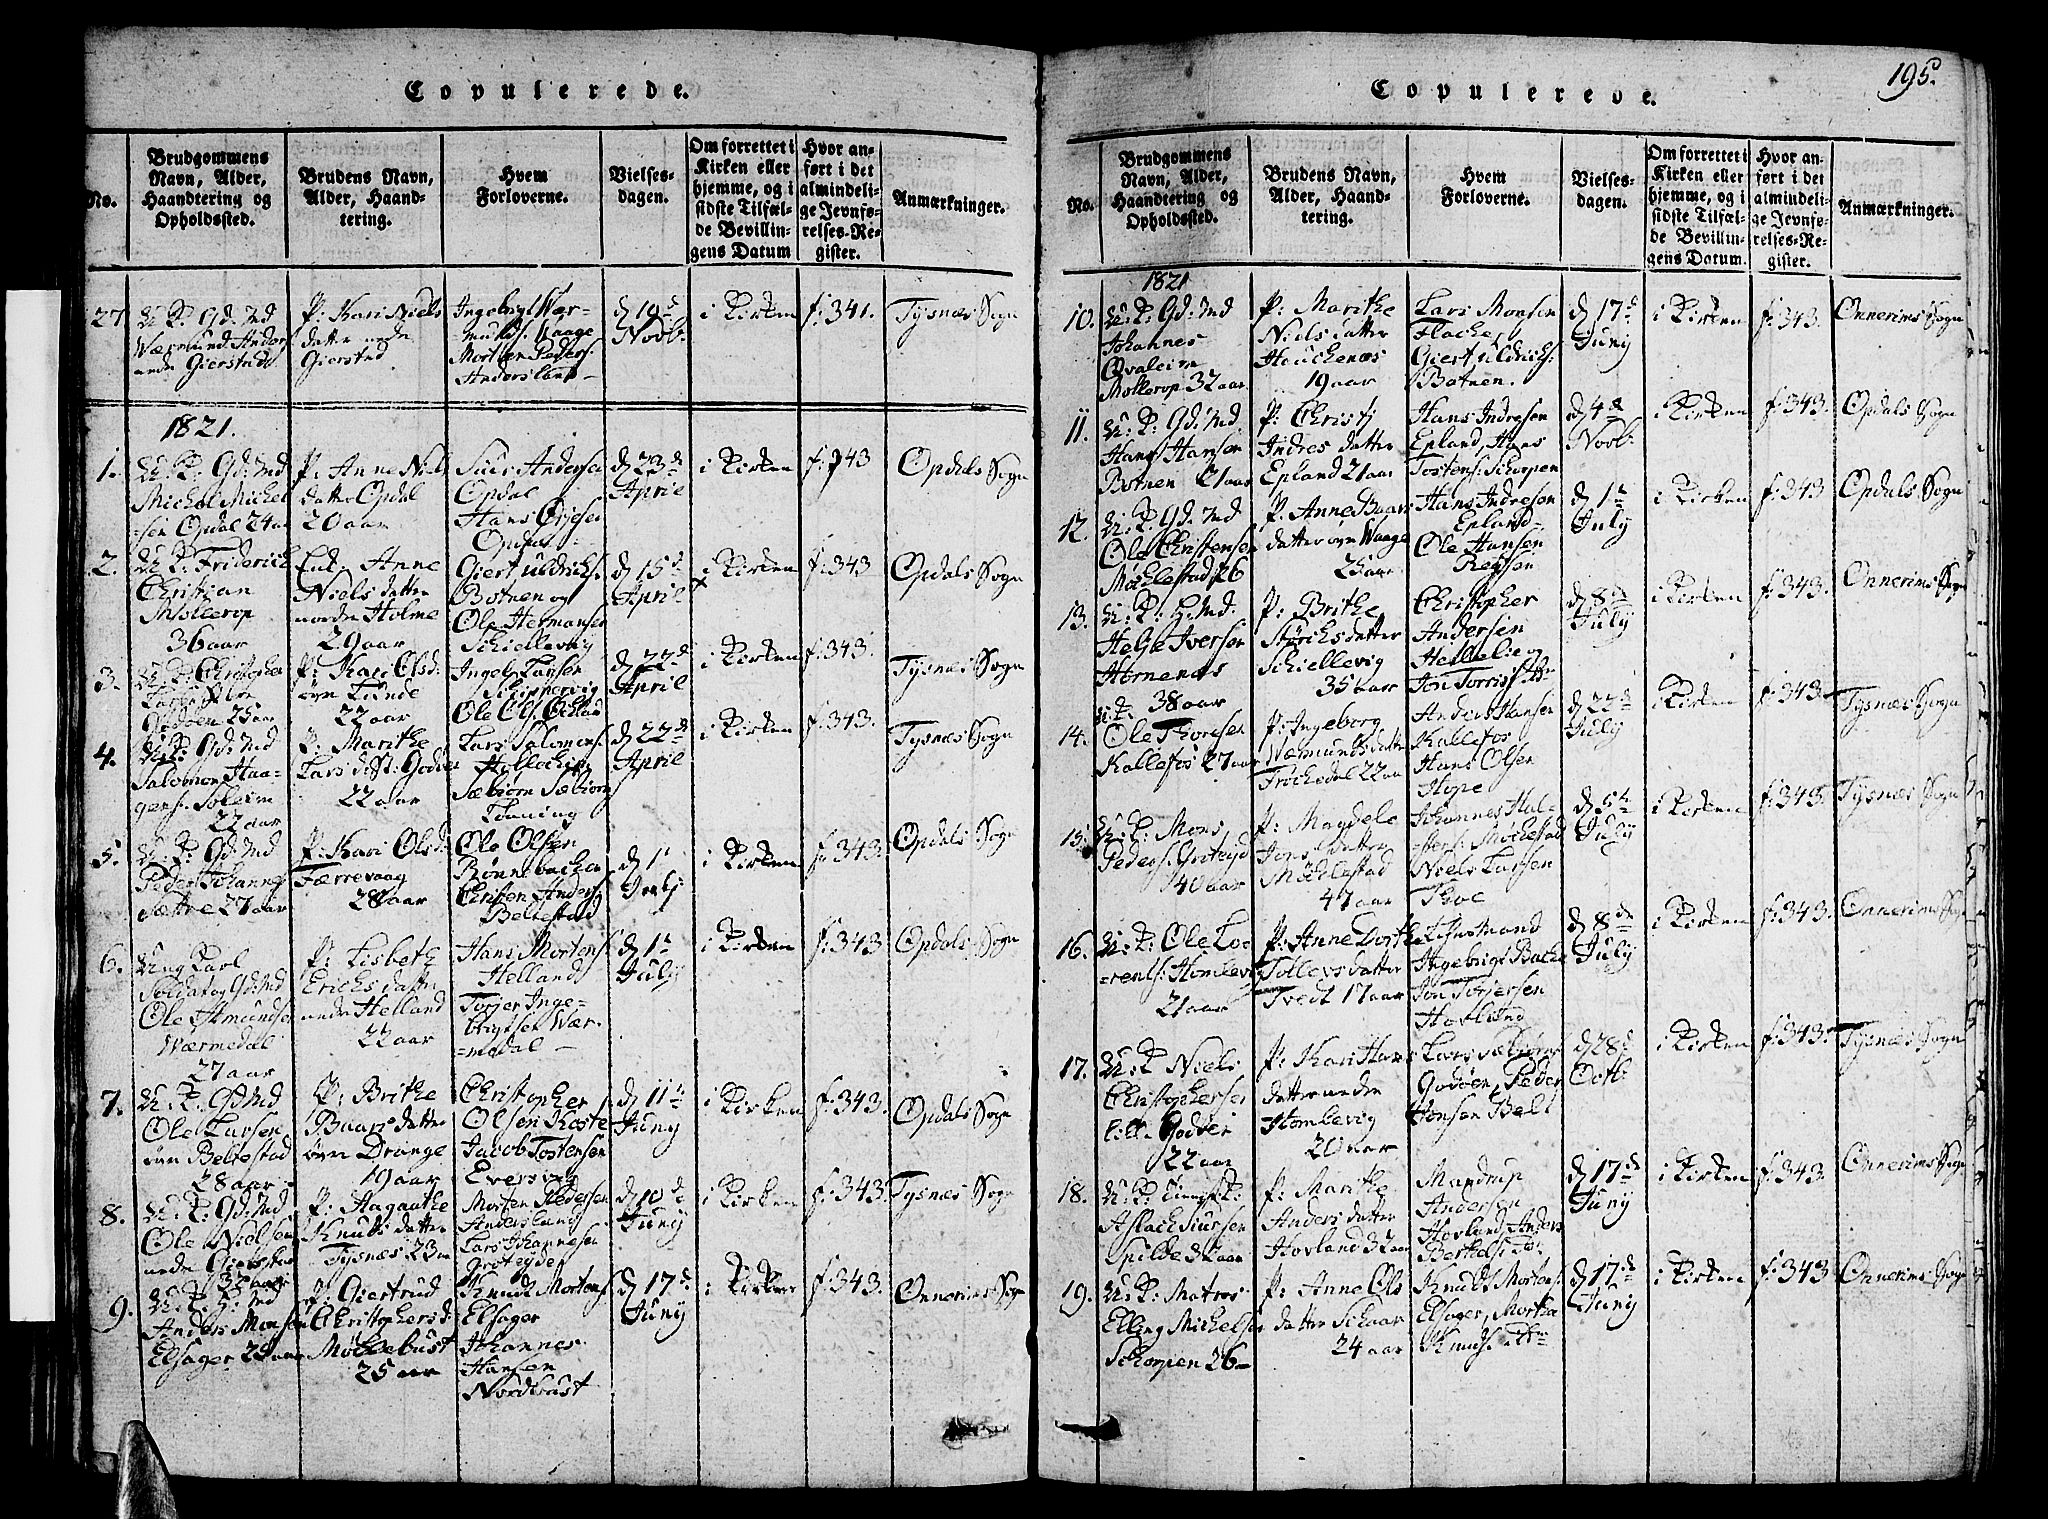 Copulerede.
No.
Brudgommens
Navn, Alder,
Haandtering og
Opholdssted.
Brudens Navn,
Alder, Haand-
tering.
Hvem
Forloverne.
Vielses-
dagen.
Om forrettet i
Kirken eller
hjemme, og i
sidste Tilfæl-
de Bevillin-
gens Datum
Hvor an-
ført i det
almindeli-
ge Jevnfø-
relses-Re-
gister.
Anmærkninger.
27
U. K. Gd: Md
Wærmund Anders
nede Gierstad
P: Kari Niels
datter nede
Gierstad
Ingebrigt Wær-
munds. Waage
Morten Peders.
Andersland
d 19d
Novb:
i Kirken
f: 341.
Tysnæs Sogn
1821.
1.
U. K. Gd: Md
Michel Michel
sen Opdal 24 a
P: Anne Niels
datter Opdal
20 aar
Siur Andersen
Opdal
Hans
Opdal
d 23d
April
i Kirken
f: 343
Opdals Sogn
2.
U. K. Friderich
Christian
Mollerop
36 aar
Enk: Anne
Niels datter
nordre Holme
29 aar
Giert Uldrichs.
Botnen og
Ole Hermansen
Schiellevig
d 15d
April
i Kirken
f: 343
Opdals Sogn
3.
U. K. Christopher
Lars
Godøen 25 aar
P: Kari Olsd:
øvre Lunde
22 aar
Ingeb. Larsen
Schippervig
Ole Ols.
d 22d
April
i Kirken
f: 343.
Tysnæs Sogn
4.
U. K. Gd: Md
Salomon Haa-
gens. Soleim
22 aar
P: Marithe
Lars d. St: Godøen
22 aar
Lars Salomons.
Sæbiørn Sæbiørns.
Lonning
d 22d
April
i Kirken
f: 343.
Tysnæs Sogn
5.
U. K. Gd: Md
Peder Johannes
Sættre 27 aar
P: Kari Olsd.
Færrevaag
28 aar
Ole Olsen
Rønnebachen
Christen Anders.
Beltestad
d 1
July
i Kirken
f: 343.
Opdals Sogn
6.
Ung Karl
Soldat og Gd: Md
Ole Amundsen
Wærmedal
27 aar
P: Lisbeth
Erichs datter
nedre Helland
22 aar
Hans Mortens.
Helland
Torjer Inge-
brigtsen Wær-
=medal
d 1
July
i Kirken
f: 343
Opdals Sogn
7.
U. K. Gd: Md
Ole Larsen
øvre Beltestad
28 aar
P: Brithe
Baars datter
øvre Drange
19 aar
Christopher
Olsen Koste
Jacob Tostensen
Eversvig
d 11
Juny
i Kirken
f: 343.
Opdals Sogn
8.
U. K. Gd: Md
Ole Nielsen
nede Gierstad
32 aar
P: Aagaathe
Knuds datter
Tysnæs 23 aar
Morten Pedersen
Andersland
Lars Johannesen
Groteyde
d 10d
Juny
i Kirken
f: 343.
Tysnæs Sogn
9.
U. K. H: Md
Anders Monsen
Elsager 29 aar
P: Giertrud
Christophersd.
Mochebust
25 aar
Knudt Mortens.
Elsager
Johannes
Hansen
Nordbust
d 17d
Juny
i Kirken
f: 343.
Onnerims Sogn
195.
Copulerede.
No.
Brudgommens
Navn, Alder,
Haandtering og
Opholdssted.
Brudens Navn,
Alder, Haand-
tering.
Hvem
Forloverne.
Vielses-
dagen.
Om forrettet i
Kirken eller
hjemme, og i
sidste Tilfæl-
de Bevillin-
gens Datum.
Hvor an-
ført i det
almindeli-
ge Jevnfø-
relses-Re-
gister.
Anmærkninger.
1821
10.
U. K. Gd: Md
Johannes
Qvaleim
Mollerop 32 aar
P: Marithe
Niels datter
Houchenæs
19 aar
Lars Monsen
Flache,
Giert Uldrichs.
Botnen.
d 17d
Juny
i Kirken
f: 343.
Onnerims Sogn
11.
U. K. Gd: Md.
Hans Hansen
Botnen 21 aar
P: Christj
Indres datter
Epland 21 aar
Hans Indresen
Epland, Hans
Tostens. Schorpen
d 4de
Novb:
i Kirken
f: 343.
Opdals Sogn
12.
U. K. Gd: Md
Ole Christensen
Mochlestad 26
P: Anne Baars
datter øvre Waage
25 aar
Hans Indresen
Epland
Ole Hansen
Regsen
d 1
July
i Kirken
f: 343
Opdals Sogn
13.
U. K. H. Md.
Helge Iversen
Hornenæs
38 aar
P: Brithe
Størchsdatter
Schiellevig
35 aar
Christopher
Andersen
Hellelie og
Jon Torris.
d 8d
July
i Kirken
f: 343.
Onnerims Sogn
14.
U. K.
Ole Thoresen
Kallefos 27 aar
P: Ingeborg
Wærmunds datter
Frøchedal 22 aar
Anders Hansen
Kallefos
Hans Olsen
Hope
d 22d
July
i Kirken
f: 343.
Tysnæs Sogn
15.
U. K: Mons
Peders. Groteyd
40 aar
P: Magdele
Jons datter
Mochlestad
47 aar
Johannes Hal-
Mochestad
Niels Larsen
Thoe
d 5t
July
i Kirken
f: 343.
Tysnæs Sogn
16.
U. K: Ole Lo-
=rents. Homlevig
21 aar
P: Anne Dorthe
Tollevs datter
Tvedt 17 aar
Lensmand
Ingebrigt Bache
Jon Torjersen
Hovland
d 8de
July
i Kirken
f: 343.
Onnerims Sogn
17.
U. K Niels
Christophersen
lille Godøen
22 aar
P: Kari Hans
datter nedre
Homlevig
20 aar
Lars Sæbiørns.
Godøen, Peder
Hansen Belt
d 28d
Octb:
i Kirken
f: 343.
Tysnæs Sogn
18.
U. K:
Aslach Siursen
Spilde 32 aar
P: Marithe
Anders datter
Hovland 32 aar
Mandrup
Andersen
Hovland Anders
Berthels.
d 17de
Juny
i Kirken
f: 343.
Onnerims Sogn
19.
U. K. Matros
Elling Michelsen
Schorpen 36
P: Anne Ols
datter Schaar
24 aar
Knudt Mortens.
Elsager, Morten
Knuds.
d 17de
Juny
i Kirken
f: 343
Onnerims Sogn